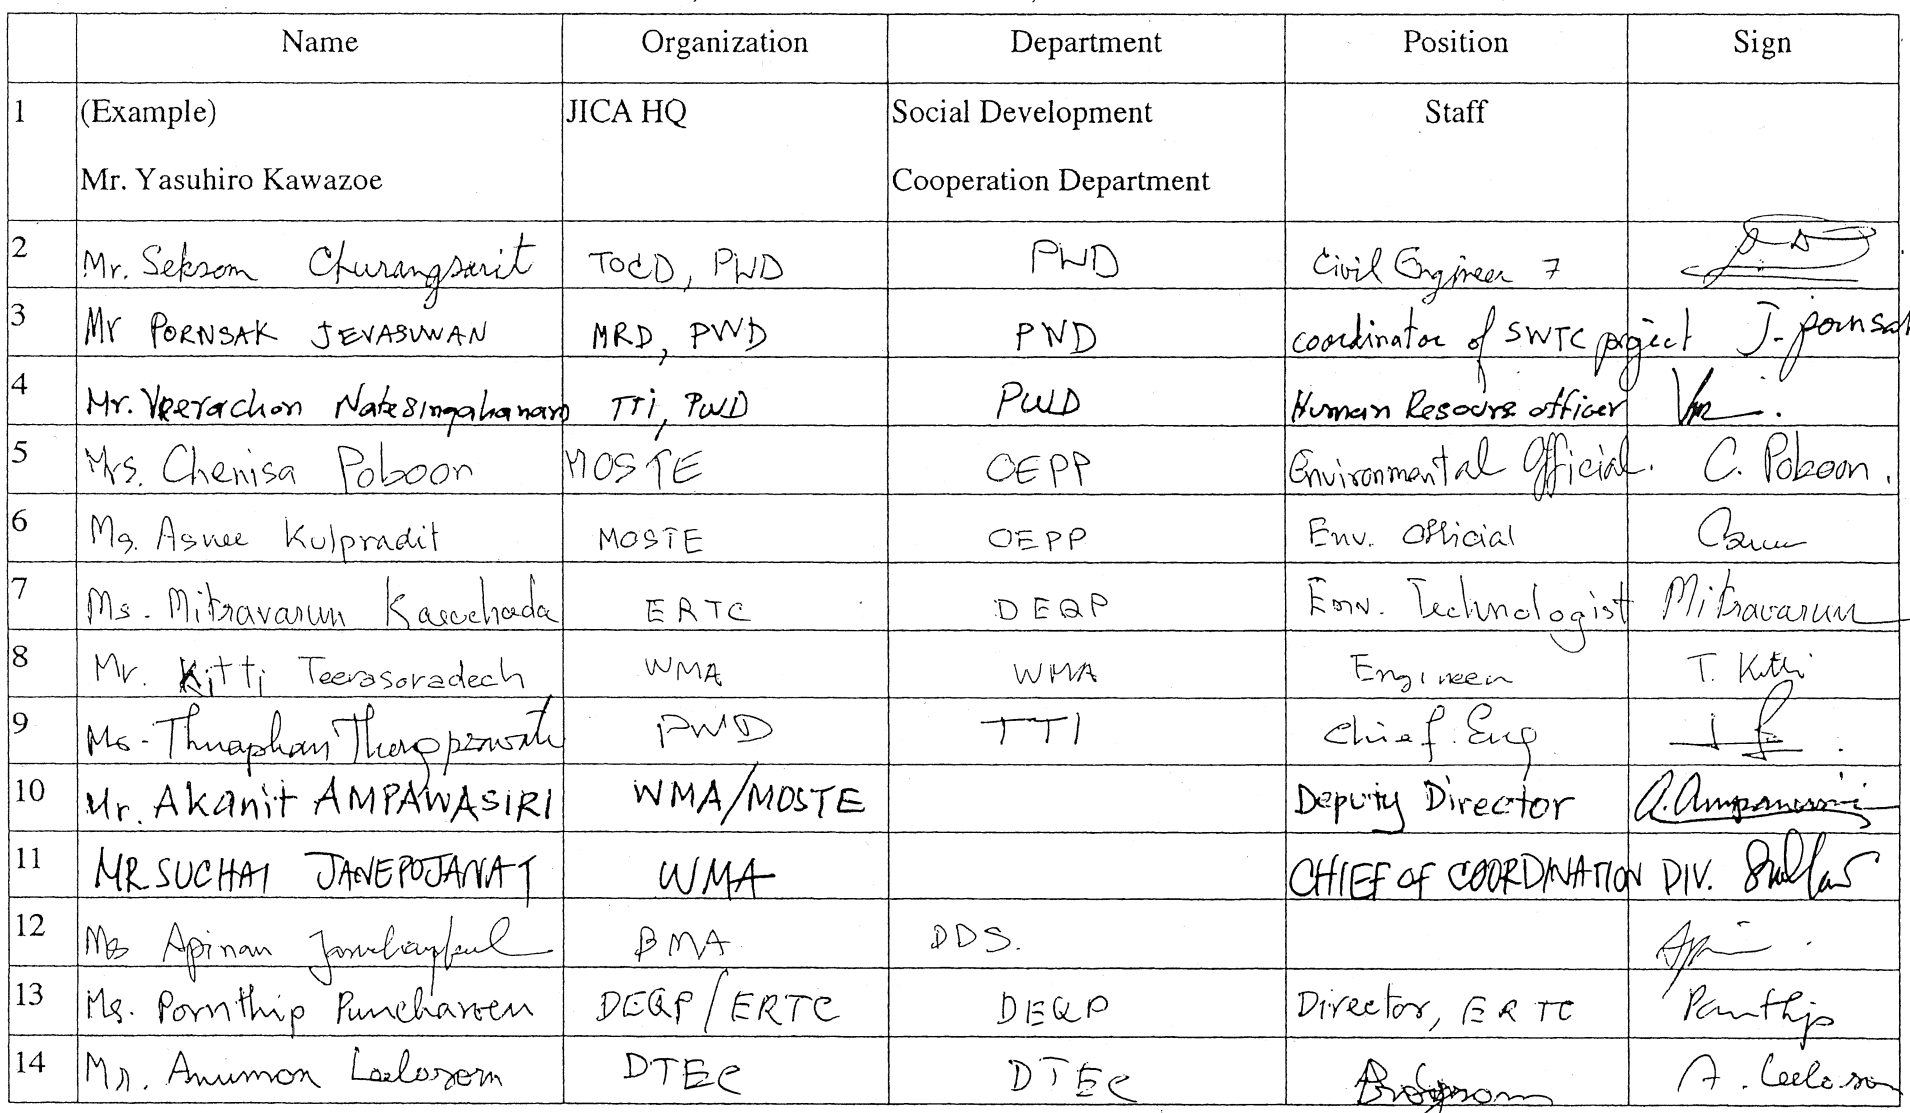 Name Organization Department Position Sign
1 (Example) JICA HQ Social Development Staff
Mr. Yasuhiro Kawazoe Cooperation Department
2 Mr. Seksom Churangsarit TOCD, PWD PWD Civil Engineer 7
3 Mr PORNSAK JEVASUWAN MRD, PWD PWD coordinator of SWTC project J-pornsak
4 Mr. Veerachon Natesingahanam TTi, PWD PWD Human Resours officer
5 Mrs. Chenisa Poboon MOSTE OEPP Environmental Official. C. Poboon.
6 Ms. Asnee Kulpradit MOSTE OEPP Env. Official
7 Ms. Mitravarun ERTC DEQP Env. Technologist Mitravarun
8 Mr. Kitti Teerasoradech WMA WMA Engineer T. Kitti
9 Ms. PWD TTI Chief. Eng
10 Mr. Akanit AMPAWASIRI WMA/MOSTE Deputy Director
11 MR SUCHAI JANEPOJANAT WMA CHIEF OF COORDINATION DIV.
12 Ms Apinan BMA DDS.
13 Ms. Pornthip Puncharoen DEQP/ERTC DEQP Director, ERTC
14 Mr. Anumon DTEC DTEC